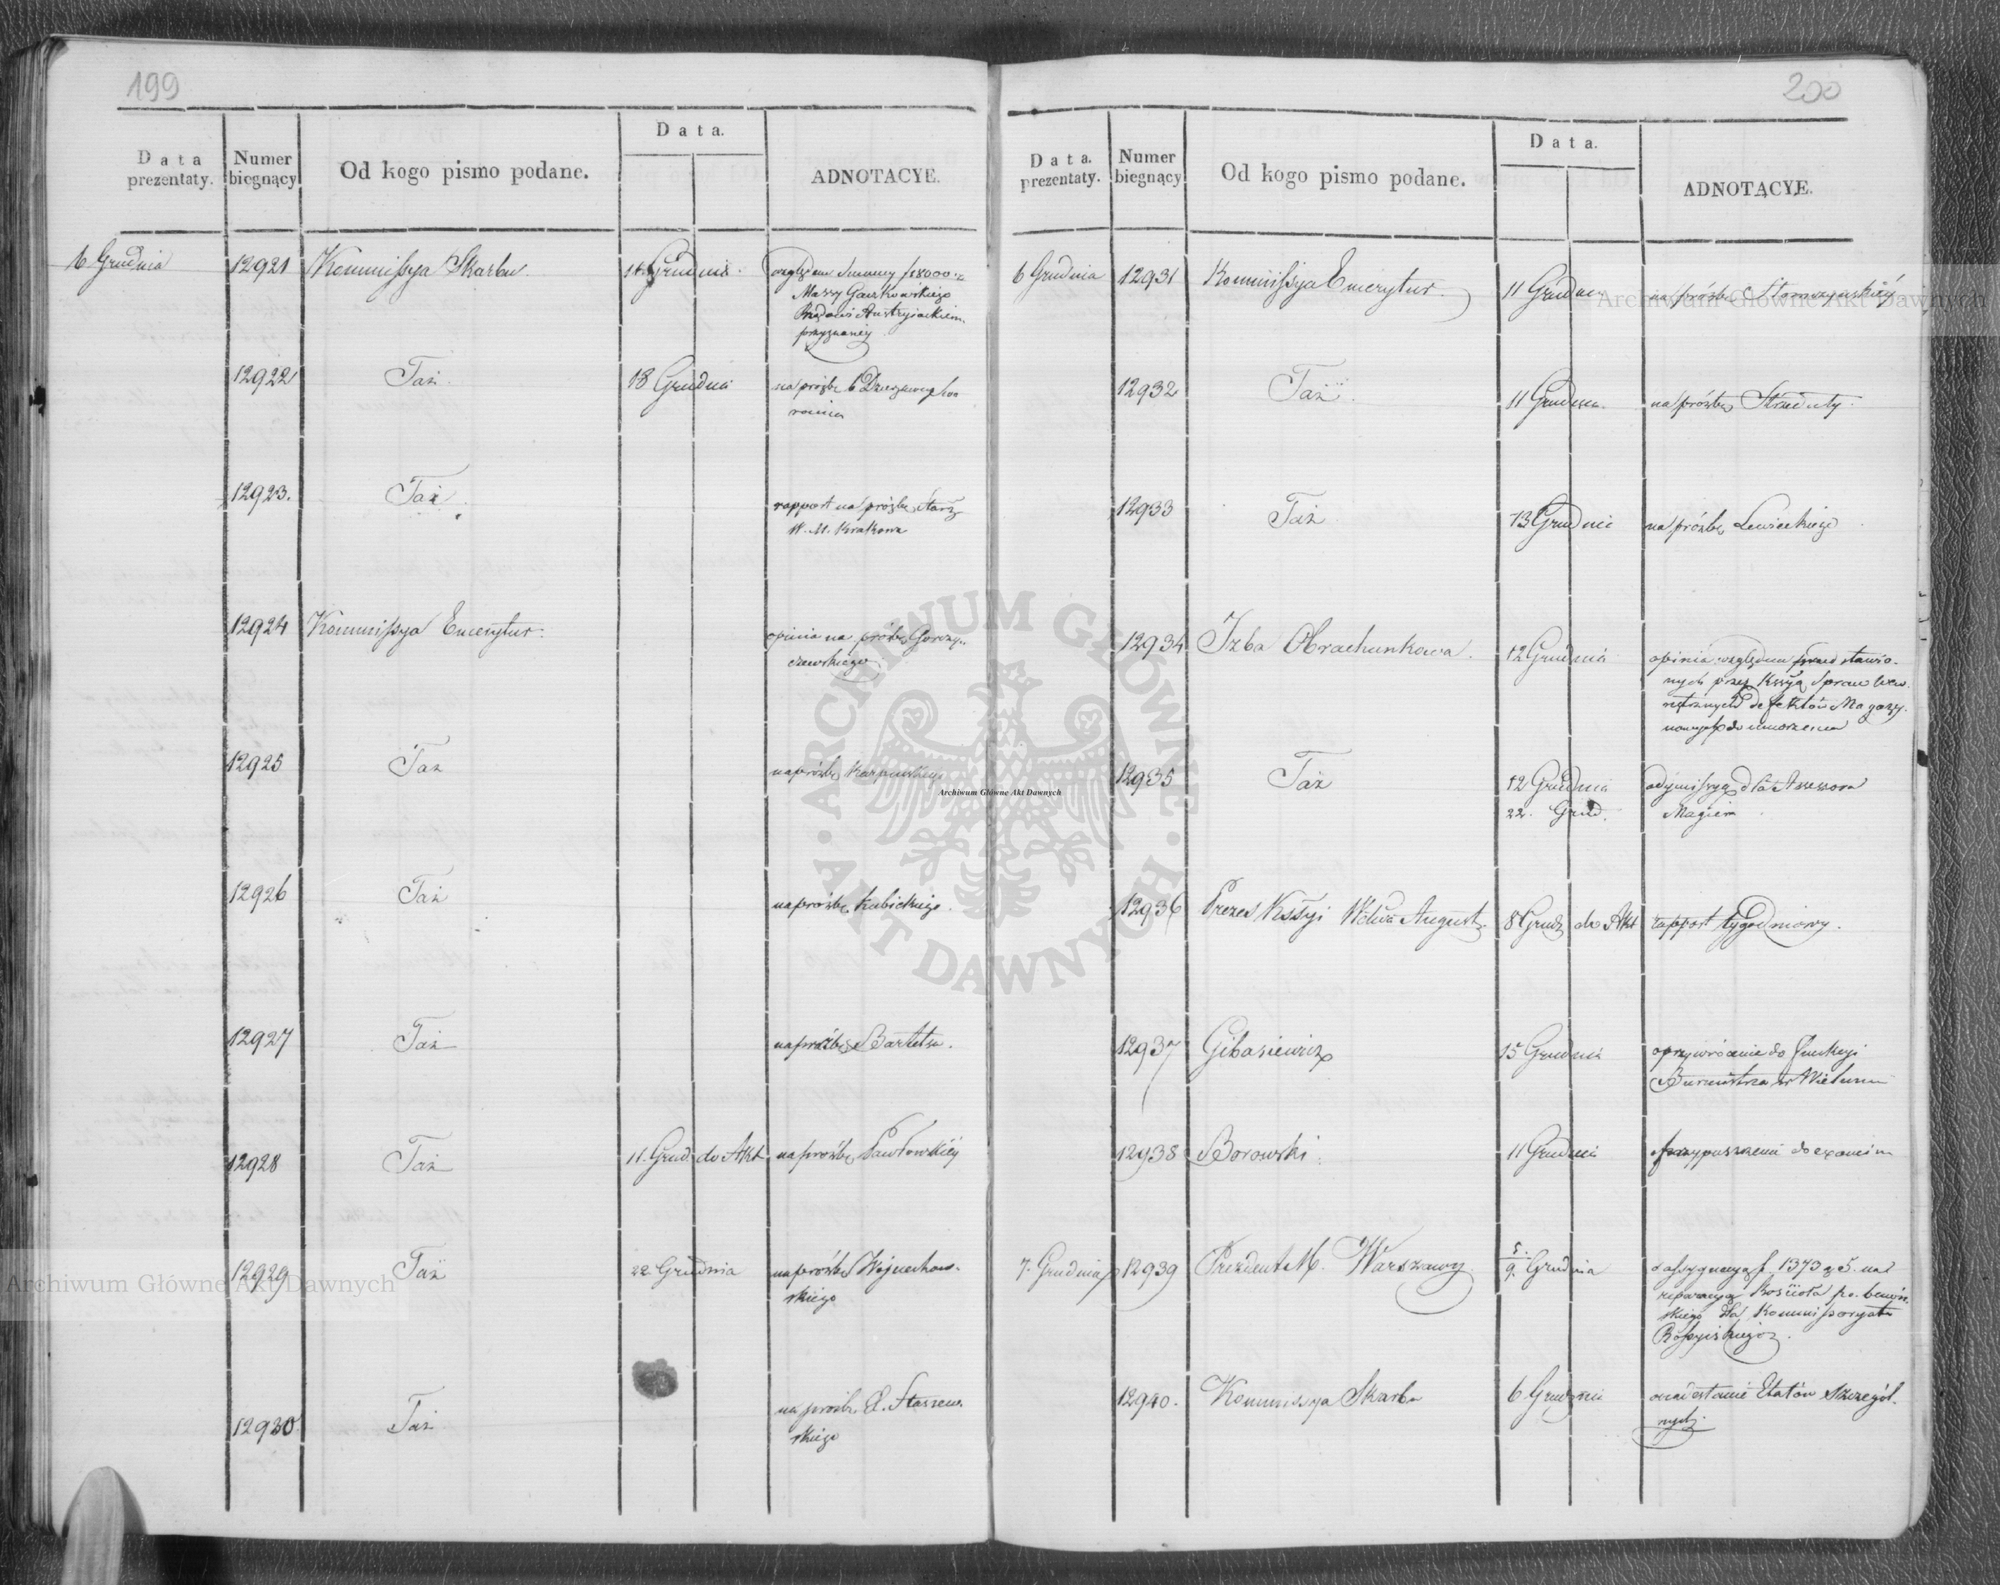 199
Data prezentaty.
Numer biegnący
Od kogo pismo podane.
Data.
ADNOTACYE.
6 Grudnia 12921 Kommissya Skarbu 14 Grudnia względem Summy f 18000
Massy
Rządowi Austryiackiem
przyznaney
12922 Taż 13 Grudnia na prośbę 6
12923. Taż rapport na prośbę Starz
W. M. Krakowa
12924 Kommissya Emerytur. opinia na prośbę Gorczy-
czewskiego
12925 Taż na prośbę Karpinskiego
12926 Taż na prośbę Kubickiego
12927 Taż na prośbę Bartelsa
12928 Taż 11. Grud. do Akt na prośbę Pawłowskiéy
12929 Taż 22 Grudnia na prośbę Woyciechow-
skiego
12930 Taż na prośbę Staszew-
skiego
200
Data. prezentaty.
Numer biegnący
Od kogo pismo podane.
Data.
ADNOTACYE.
6 Grudnia 12931 Kommissya Emerytur 11 Grudnia na prośbę
12932 Taż. 11 Grudnia. na prośbę
12933 Taż 13 Grudnia na prośbę Lewickiego
12934 Izba Obrachunkowa. 12 Grudnia opinia względem przedstawio-
nych przez Kssyą Spraw Wew-
nętrznych defektów Magazy-
nowych do umorzenia
12935 Taż 12 Grudnia
22. Grud.
dla Assessora
Magiera
12936 Prezes Kssyi Wdztwa August. 8 Grud. do Akt rapport tygodniowy.
12937 Gibasiewicz 15 Grudnia o przywrócenie do funkcyi
Burmistrza w Wieluniu
12938 Borowski 11 Grudnia o przypuszczenie do examinu
7. Grudnia 12939 Prezydent M. Warszawy 5.
9. Grudnia o assygnacyą f. 1373 g 5. na
reparacyą Kościoła po
dla Kommissoryatu
Rossyiskiego.
12940. Kommissya Skarbu 6 Grudnia o nadesłanie Etatów Szczegól-
nych.
Archiwum Główne Akt Dawnych
ARCHIWUM GŁÓWNE AKT DAWNYCH
Archiwum Główne Akt Dawnych
Archiwum Główne Akt Dawnych